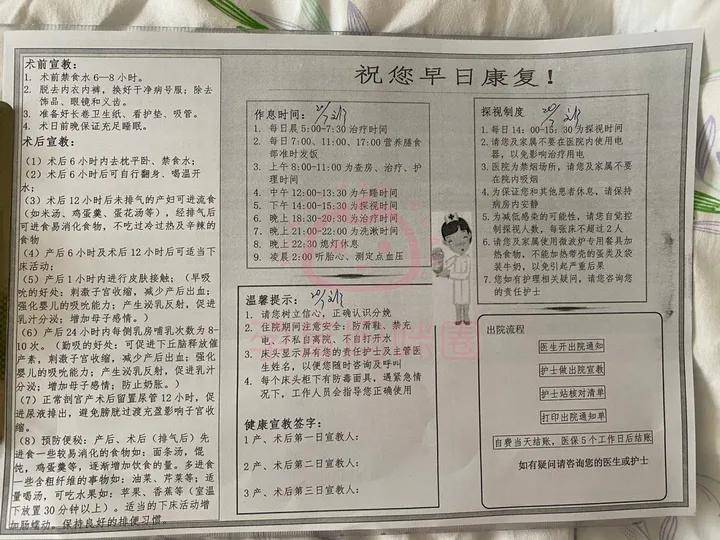 祝您早日康复!
术前宣教:
1. 术前禁食水 6—8 小时。
2. 脱去内衣内裤，换好干净病号服；除去
饰品、眼镜和义齿。
3. 准备好长卷卫生纸、看护垫、吸管。
4. 术日前晚保证充足睡眠。
术后宣教:
(1) 术后 6 小时内去枕平卧、禁食水；
(2) 术后 6 小时后可自行翻身、喝温开
水；
(3) 术后 12 小时后未排气的产妇可进流食
(如米汤、鸡蛋羹、蛋花汤等)，经排气后
可进食易消化食物，不吃过冷过热及辛辣的
食物
(4) 产后 6 小时及术后 12 小时后可适当下
床活动；
(5) 产后 1 小时内进行皮肤接触；(早吸
吮的好处：刺激子宫收缩，减少产后出血；
强化婴儿的吸吮能力；产生泌乳反射，促进
乳汁分泌；增加母子感情。)
(6) 产后 24 小时内每侧乳房哺乳次数为 8-
10 次。(勤吸的好处：可促进下丘脑释放催
产素，刺激子宫收缩，减少产后出血；强化
婴儿的吸吮能力；产生泌乳反射，促进乳汁
分泌；增加母子感情；防止奶胀。)
(7) 正常剖宫产术后留置尿管 12 小时，促
进尿液排出，避免膀胱过渡充盈影响子宫收
缩。
(8) 预防便秘：产后、术后（排气后）先
进食一些较易消化的食物如：面条汤，馄
饨，鸡蛋羹等，逐渐增加饮食的量。多进食
一些含粗纤维的事物如：油菜、芹菜等；适
量喝汤，可吃水果如：苹果、香蕉等（室温
下放置 30 分钟以上）。适当的下床活动增
加肠蠕动，保持良好的排便习惯。
作息时间:
1. 每日晨 5:00-7:30 治疗时间
2. 每日 7:00、11:00、17:00 营养膳食
部准时发饭
3. 上午 8:00-11:00 为查房、治疗、护
理时间
4. 中午 12:00-13:30 为午睡时间
5. 下午 14:00-15:30 为探视时间
6. 晚上 18:30-20:30 为治疗时间
7. 晚上 21:00-22:00 为洗漱时间
8. 晚上 22:30 熄灯休息
9. 凌晨 2:00 听胎心、测定点血压
温馨提示:
1. 请您树立信心，正确认识分娩
2. 住院期间注意安全：防滑鞋、禁充
电、不私自离院、不自打开水
3. 床头显示屏有您的责任护士及主管医
生姓名，以便您随时咨询及呼叫
4. 每个床头柜下有防毒面具，遇紧急情
况下，工作人员会指导您正确使用
健康宣教签字:
1 产、术后第一日宣教人:
2 产、术后第二日宣教人:
3 产、术后第三日宣教人:
探视制度
1. 每日 14:00-15:30 为探视时间
2. 请您及家属不要在医院内使用电
器，以免影响治疗用电
3. 医院为禁烟场所，请您及家属不要
在院内吸烟
4. 为保证您和其他患者休息，请保持
病房内安静
5. 为减低感染的可能性，请您自觉控
制探视人数，每张床不超过 2 人
6. 请您及家属使用微波炉专用餐具加
热食物，不能加热带壳的蛋类及袋
装牛奶，以免引起严重后果
7. 您如有护理相关疑问，请您咨询您
的责任护士
出院流程
医生开出院通知
护士做出院宣教
护士站核对清单
打印出院通知单
自费当天结账，医保 5 个工作日后结账
如有疑问请咨询您的医生或护士